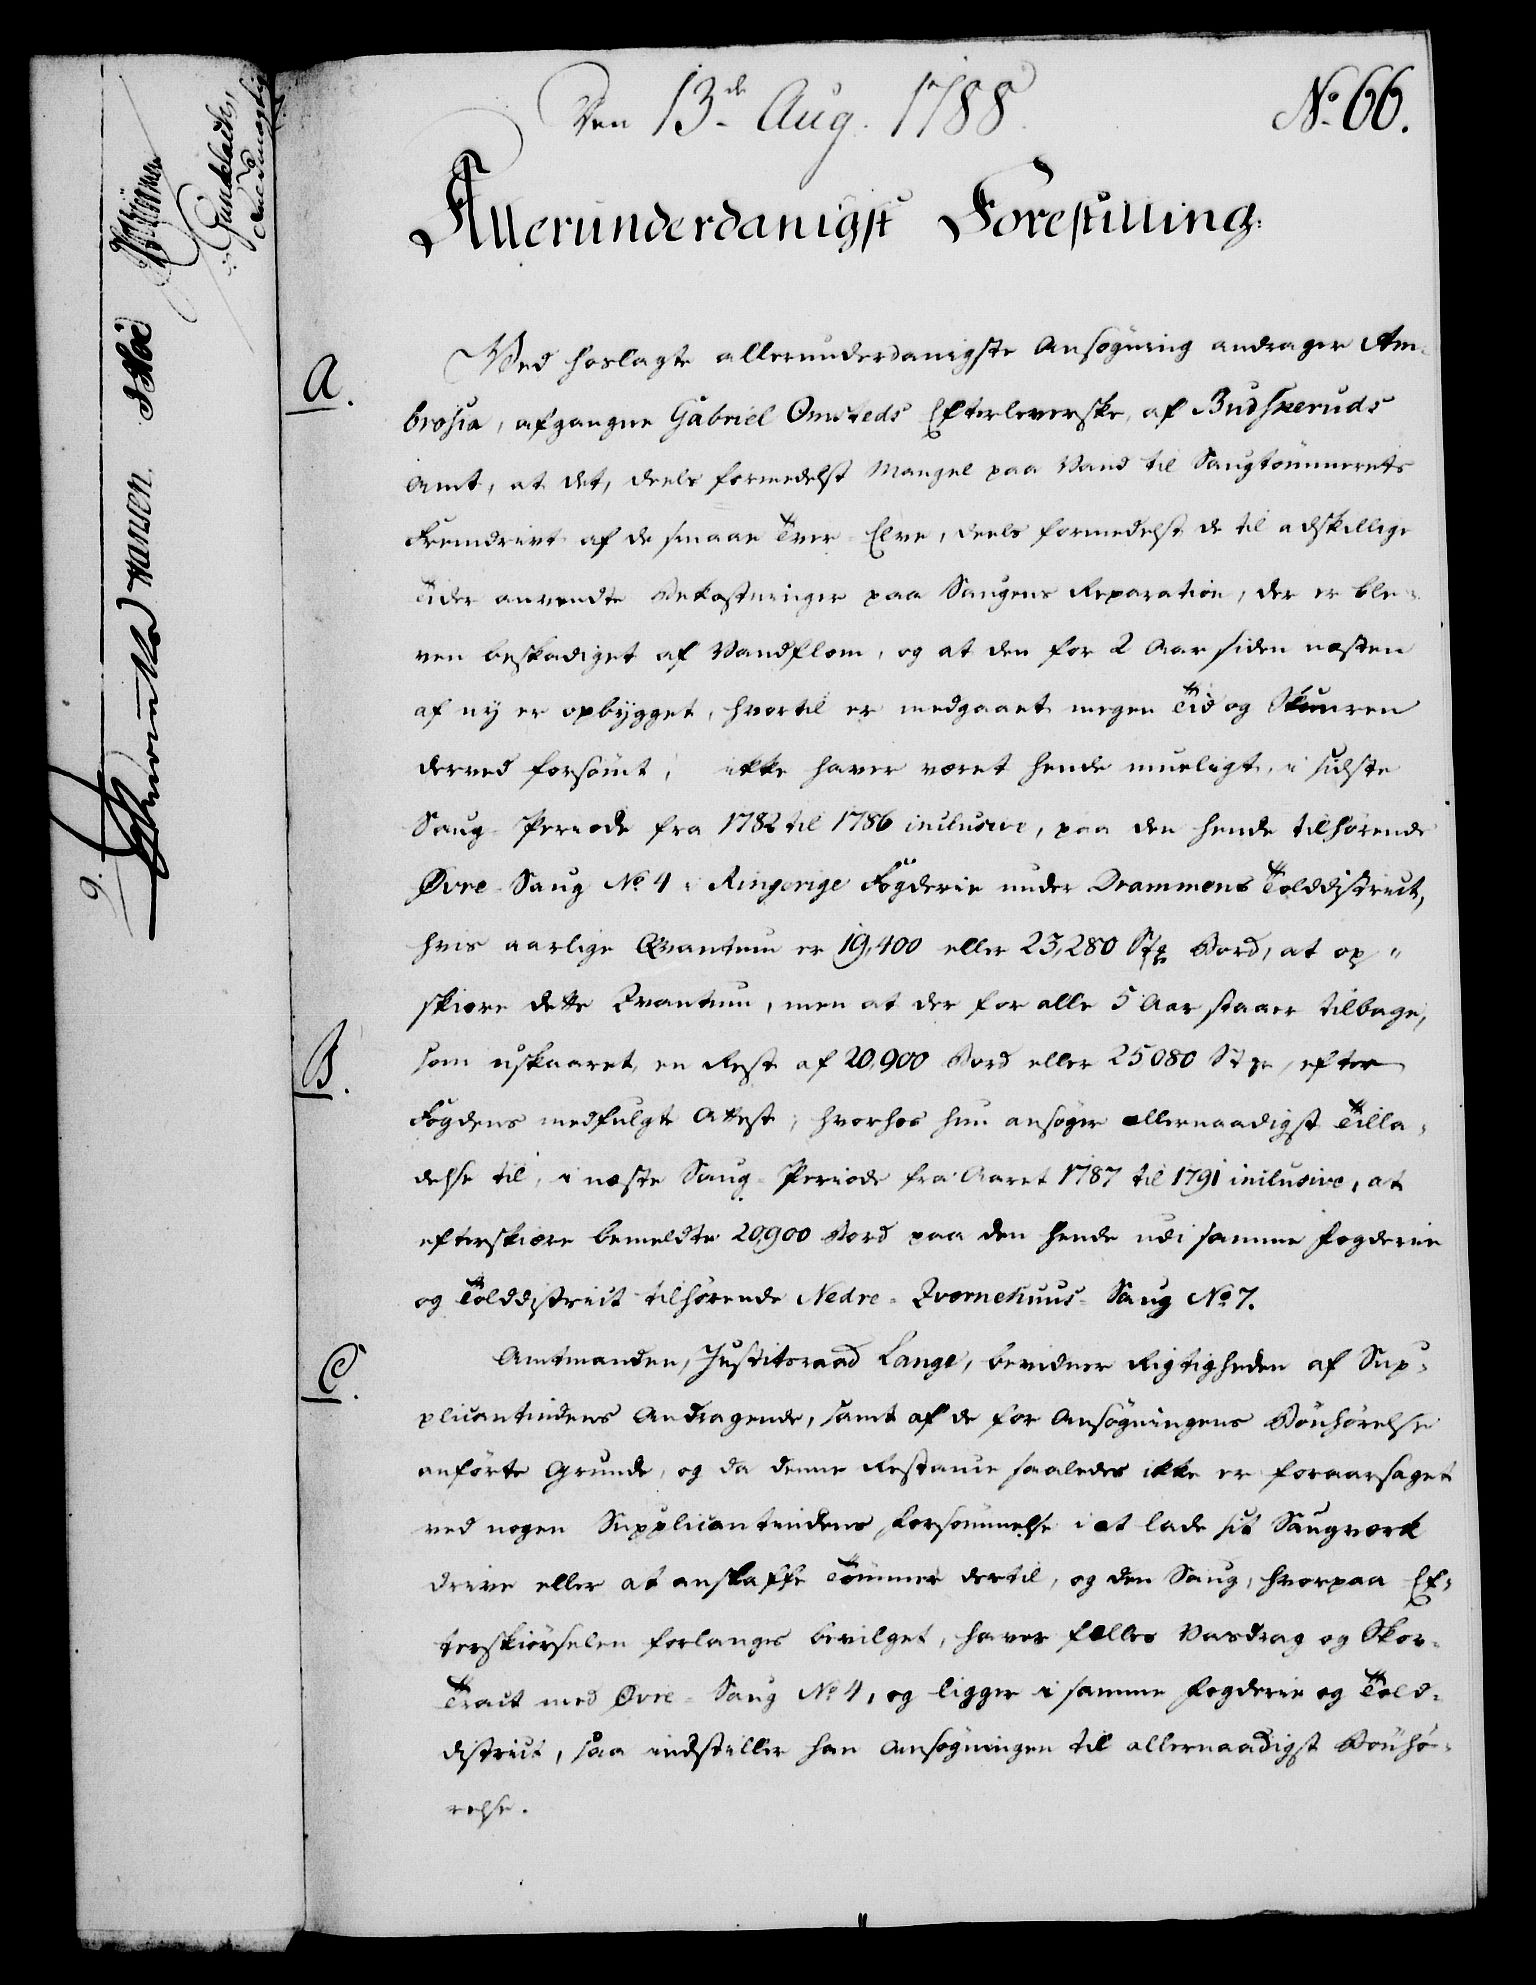 Den 13de Aug. 1788.
No 66.
Allerunderdanigst Forestilling:
A.
Ved hoslagte allerunderdanigste Ansøgning andrager Am-
brosia, afgangne Gabriel Omsteds Efterleverske, af Budskeruds
Amt, at det, deels formedelst Mangel paa Vand til Saugtømmerets
Fremdrivt af de smaae Tver-Elve, deels formedelst de til adskillige
Tider anvendte Bekostninger paa Saugens Reparation, der er ble-
ven beskadiget af Vandflom, og at den for 2 Aar siden næsten
af nÿ er opbÿgget, hvortil er medgaaet megen Tid og Skuuren
derved forsømt, ikke haver været hende mueligt, i sidste
Saug-Periode fra 1782 til 1786 inclusive, paa den hende tilhørende
Øvre-Saug No 4 i Ringerige Fogderie under Drammens Tolddistrict,
hvis aarlige Qvantum er 19,400 eller 23,280 Stk Bord, at op-
skiære dette Qvantum, men at der for alle 5 Aar staaer tilbage,
B.
som uskaaret, en Rest af 20,900 Bord eller 25,080 Stk, efter
Fogdens medfulgte Attest; hvorhos hun ansøger allernaadigst Tilla-
delse til, i næste Saug-Periode fra Aaret 1787 til 1791 inclusive, at
efterskiære bemeldte 20,900 Bord paa den hende udi samme Fogderie
og Tolddistrict tilhørende Nedre-Qværnehuus-Saug No 7.
C.
Amtmanden, Justitsraad Lange, bevidner Rigtigheden af Sup-
plicantindens Andragende, samt af de for Ansøgningens Bønhørelse
anførte Grunde, og da denne Restance saaledes ikke er foraarsaget
ved nogen Supplicantindens Forsømmelse i at lade sit Saugværk
drive eller at anskaffe Tømmer dertil, og den Saug, hvorpaa Ef-
terskiørselen forlanges bevilget, haver fælles Vasdrag og Skov-
Tract med Øvre-Saug No 4, og ligger i samme Fogderie og Told-
district, saa indstiller han Ansøgningen til allernaadigst Bønhø-
relse.
Hansen